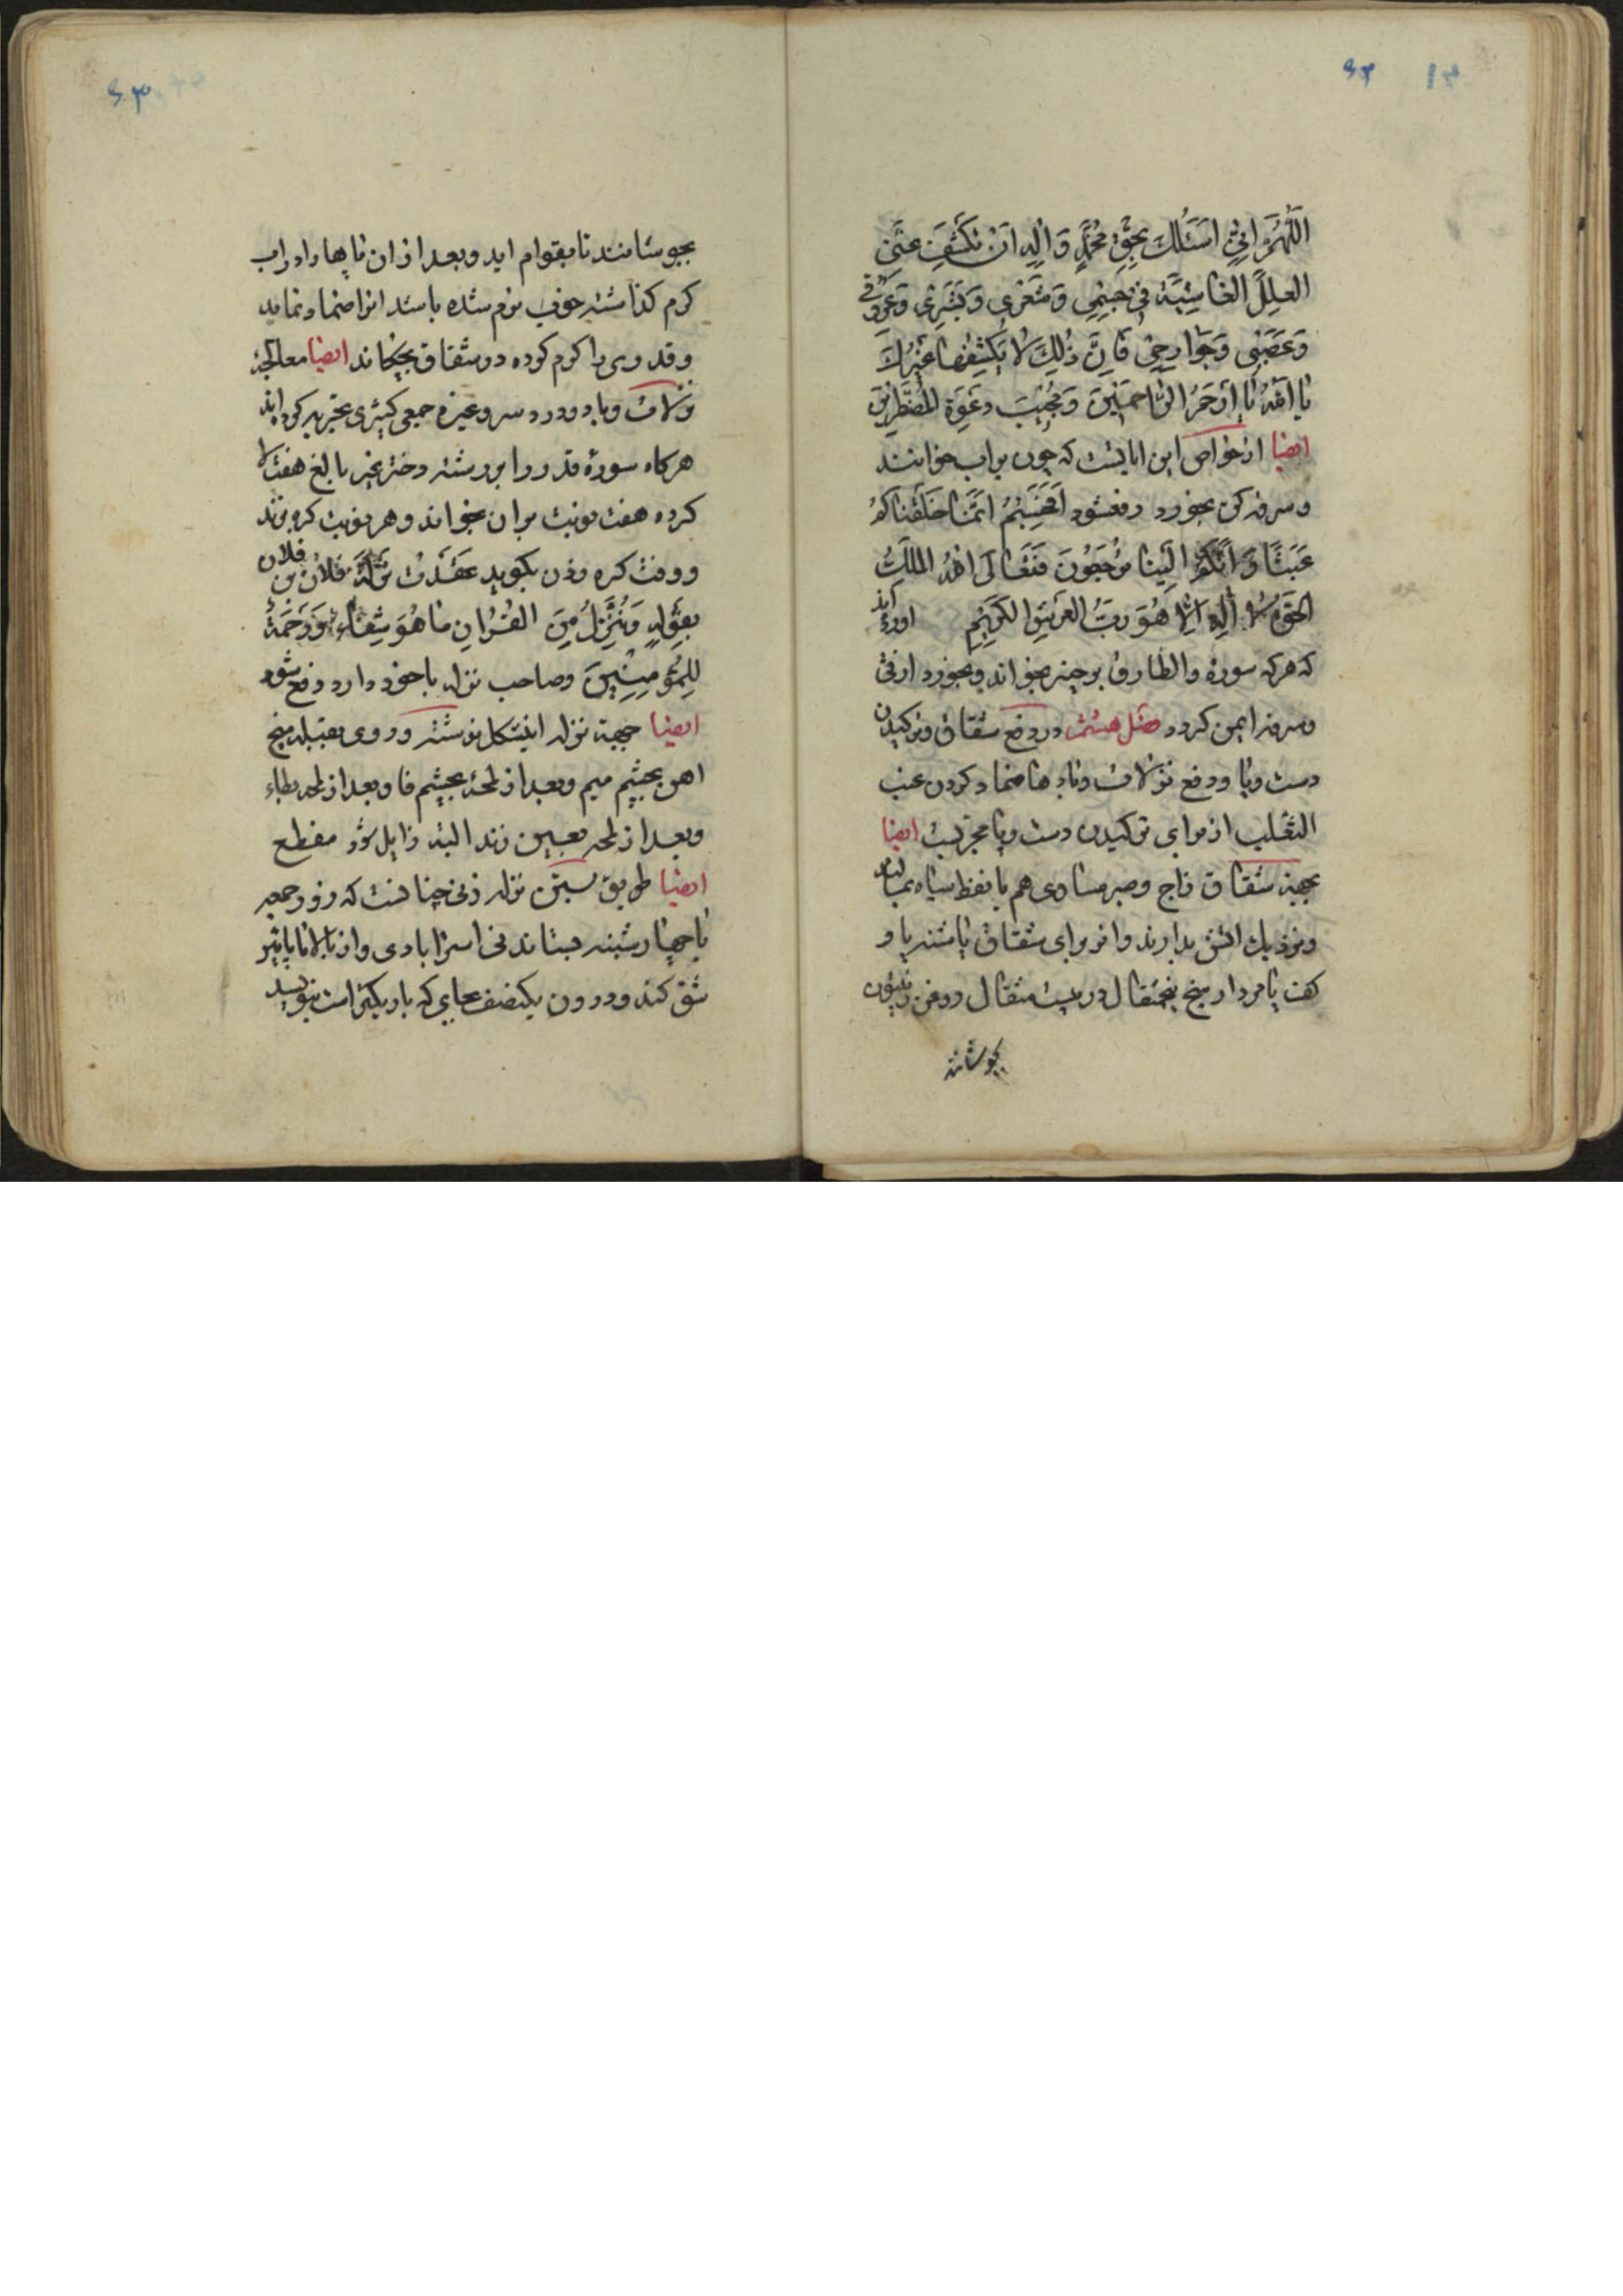 ۶۲
اَللّهُمَّ اِنّی اَسْئَلُكَ بِحَقِّ مُحَمَّدٍ وَ الِهِ اَنْ تَكْشِفَ عَنّی
العِلَلَ الغاشِيَةَ فی جِسْمی وَ شَعْری وَ بَشَری وَ عُرُوقی
وَ عَصَبی وَ جَوارِحی فَاِنَّ ذٰلِكَ لا يَكْشِفُها غَيْرُكَ
يا اَللّهُ يا اَرْحَمَ الرّاحِمينَ وَ مُجيبَ دَعْوَةِ المُضْطَرّينَ
ایضا از خواص این ایاتست که چون بر اب خوانند
و سرفه کن بخورد رفع شود اَفَحَسِبْتُمْ اَنَّما خَلَقْناكُمْ
عَبَثًا وَ اَنَّكُمْ اِلَيْنا لا تُرْجَعُونَ فَتَعالَی اللّهُ المَلِكُ
الحَقُّ لا اِلٰهَ اِلّا هُوَ رَبُّ العَرْشِ الكَريمِ اورده اند
که هر که سوره والطارق بر چیزی بخواند و بخورد از قی
و سرفه ایمن کردد فصل هشتم در دفع شقاق و ترکیدن
دست و پا و دفع نزلات و بادها ضماد کردن عنب
الثعلب از برای ترکیدن دست و پا مجربست ایضا
بجهة شقاق زاج و صبر مساوی هم با نفط سیاه بمالند
و نزدیك اتش بدارند و از برای شقاق پاشنه پا و
کف پا مردار سنج پنجمثقال در بیست مثقال روغن زیتون
بجوشانند
۶۳
بجوشانند تا بقوام اید و بعد از ان پاها را در اب
کرم کذاشته خوب نرم شده باشد انرا ضماد نماید
و قدری را کرم کرده در شقاق بچکاند ایضا معالجة
نزلات و باد و درد سر و غیره جمعی کثیری تجربه کرده اند
هر کاه سورة قدر را بر رشته دختر غیر بالغ هفت لا
کرده هفت نوبت بر ان بخواند و هر نوبت کره بزند
و وقت کره زدن بکوید عَقَدْتُ نَزْلَةَ فلان بن فلان
بِقَوْلِهِ وَ نُنَزِّلُ مِنَ القُرْانِ ما هُوَ شِفاءٌ وَ رَحْمَةٌ
لِلْمُؤْمِنينَ و صاحب نزله با خود دارد دفع شود
ایضا جهة نزله اینشکل نوشته و روی بقبله میخ
اهن بچشم میم و بعد از لمحهٔ بچشم فا و بعد از لمحه بطاء
و بعد از لمحه بعین زند البته زایل شود مفطع
ایضا طریق بستن نزله زنی چنانست که روز جمعه
یا چهارشنبه بستاند نی استرابادی و از بالا تا پائین
شق کند و درون یکنصف بجایی که باریکتر است بنویسد